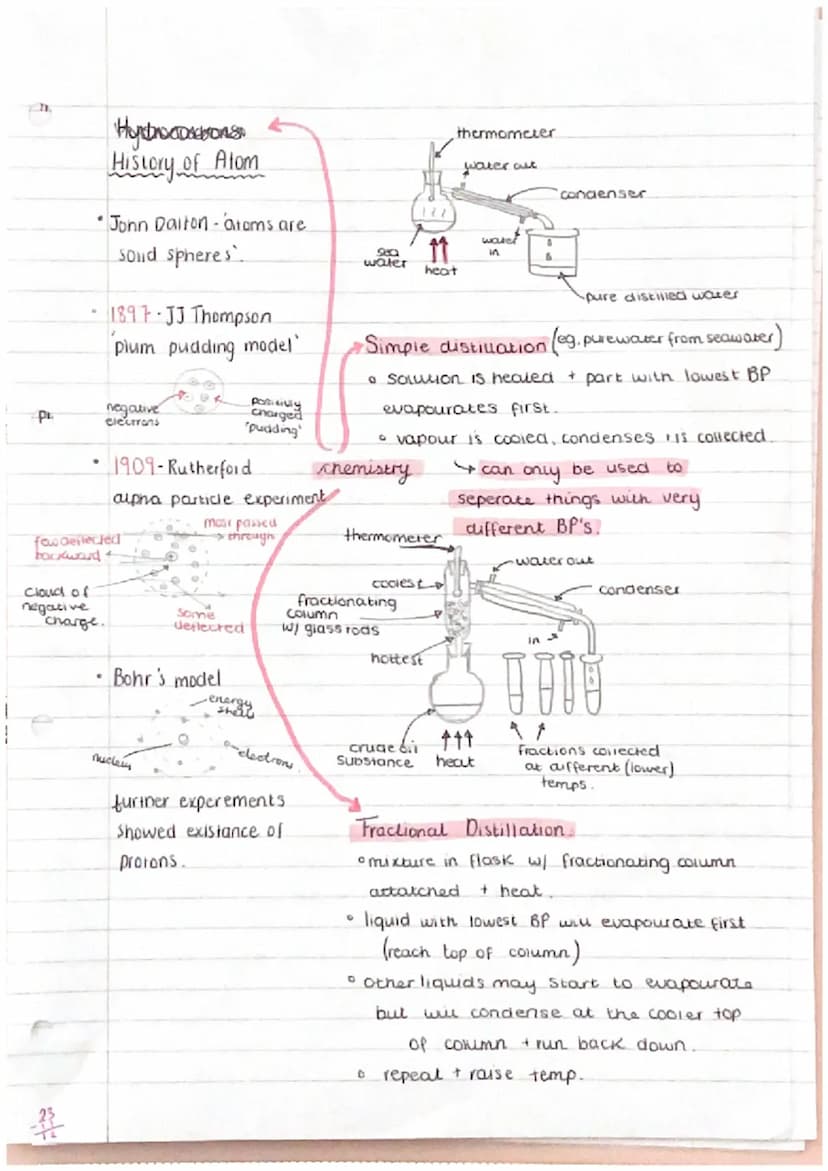 Hydrocarbons
History of Atom
• John Dalton - 'atoms are
solid spheres'.
• 1897 - JJ Thompson
'plum pudding model'
negative
electrons
positively
charged
'pudding'
• 1909 - Rutherford
alpha particle experiment
few deflected
backward
most passed
through
cloud of
negative
charge.
some
deflected
• Bohr's model
energy
shells
nucleus
electrons
further experements
showed existance of
protons.
chemistry
thermometer
water out
condenser
sea
water
heat
water
in
pure distilled water
Simple distillation (eg. pure water from seawater)
• solution is heated + part with lowest BP
evapourates first.
• vapour is cooled, condenses + is collected.
↳ can only be used to
seperate things with very
different BP's.
thermometer
water out
coolest
condenser
fractionating
column
w/ glass rods
in
hottest
crude oil
substance
heat
fractions collected
at different (lower)
temps.
Fractional Distillation.
• mixture in flask w/ fractionating column
astatched + heat.
• liquid with lowest BP will evapourate first
(reach top of column)
• Other liquids may start to evapourate
but will condense at the cooler top
of column + run back down.
• repeat + raise temp.
23